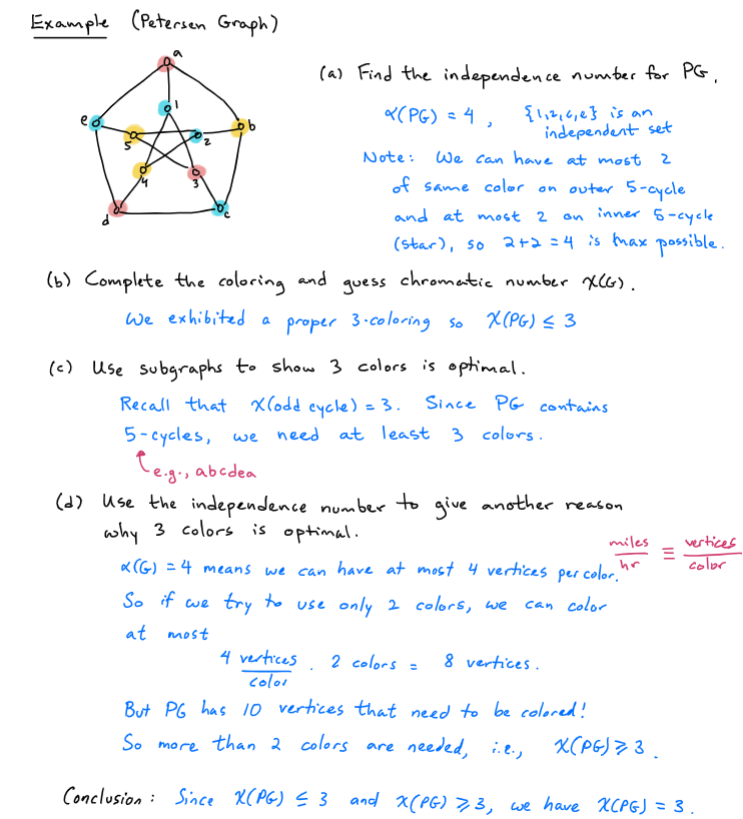 Example (Petersen Graph)
a
1
e
b
5
2
4
3
d
c
(a) Find the independence number for PG.
α(PG) = 4, {1,2,c,e} is an
independent set
Note: We can have at most 2
of same color on outer 5-cycle
and at most 2 on inner 5-cycle
(star), so 2+2=4 is max possible.
(b) Complete the coloring and guess chromatic number χ(G).
We exhibited a proper 3-coloring so χ(PG) ≤ 3
(c) Use subgraphs to show 3 colors is optimal.
Recall that χ(odd cycle) = 3. Since PG contains
5-cycles, we need at least 3 colors.
e.g., abcdea
(d) Use the independence number to give another reason
why 3 colors is optimal.
miles/hr ≡ vertices/color
α(G) = 4 means we can have at most 4 vertices per color.
So if we try to use only 2 colors, we can color
at most
4 vertices/color · 2 colors = 8 vertices.
But PG has 10 vertices that need to be colored!
So more than 2 colors are needed, i.e., χ(PG) ≥ 3.
Conclusion: Since χ(PG) ≤ 3 and χ(PG) ≥ 3, we have χ(PG) = 3.